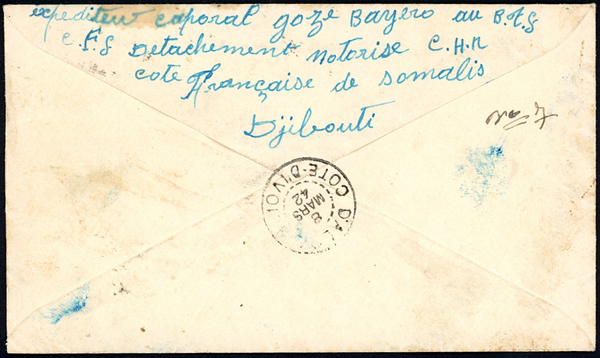 expediteur caporal goze Bayero au B.T.S
C.F.S Detachement Motorise C.H.R
cote Française de somalis
Djibouti
COTE-D'IVOI
8
MARS
42